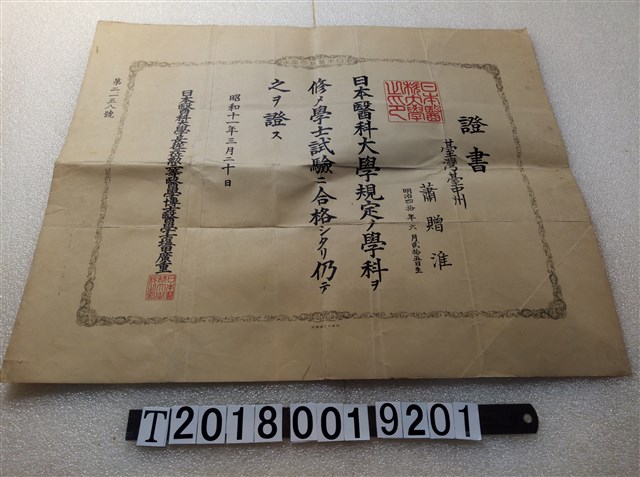 證書
臺灣臺中州
蕭贈淮
明治四拾年六月貳拾五日生
日本醫科大學規定ノ學科ヲ
修メ學士試驗ニ合格シタリ仍テ
之ヲ證ス
昭和十一年三月二十日
日本醫科大學長
塩田廣重
第二一五八號
日本醫
科大學
之印
T20180019201